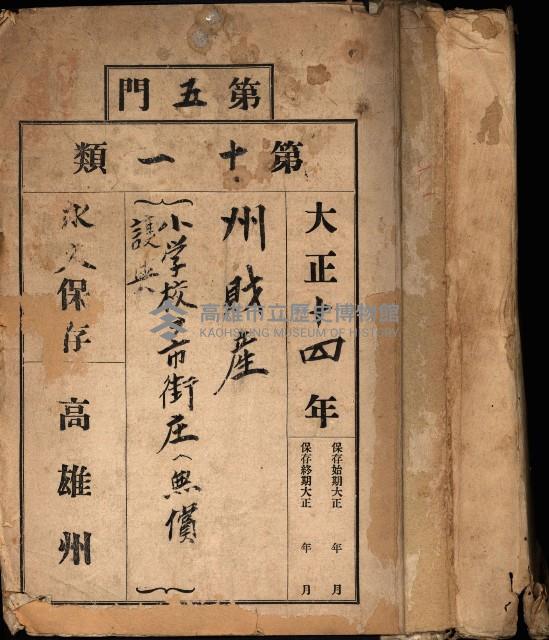 第五門
第十一類
大正十四年
保存始期大正 年 月
保存終期大正 年 月
州財産
小学校ヲ市街庄ヘ無償
譲與
永久保存
高雄州
高雄市立歷史博物館
KAOHSIUNG MUSEUM OF HISTORY